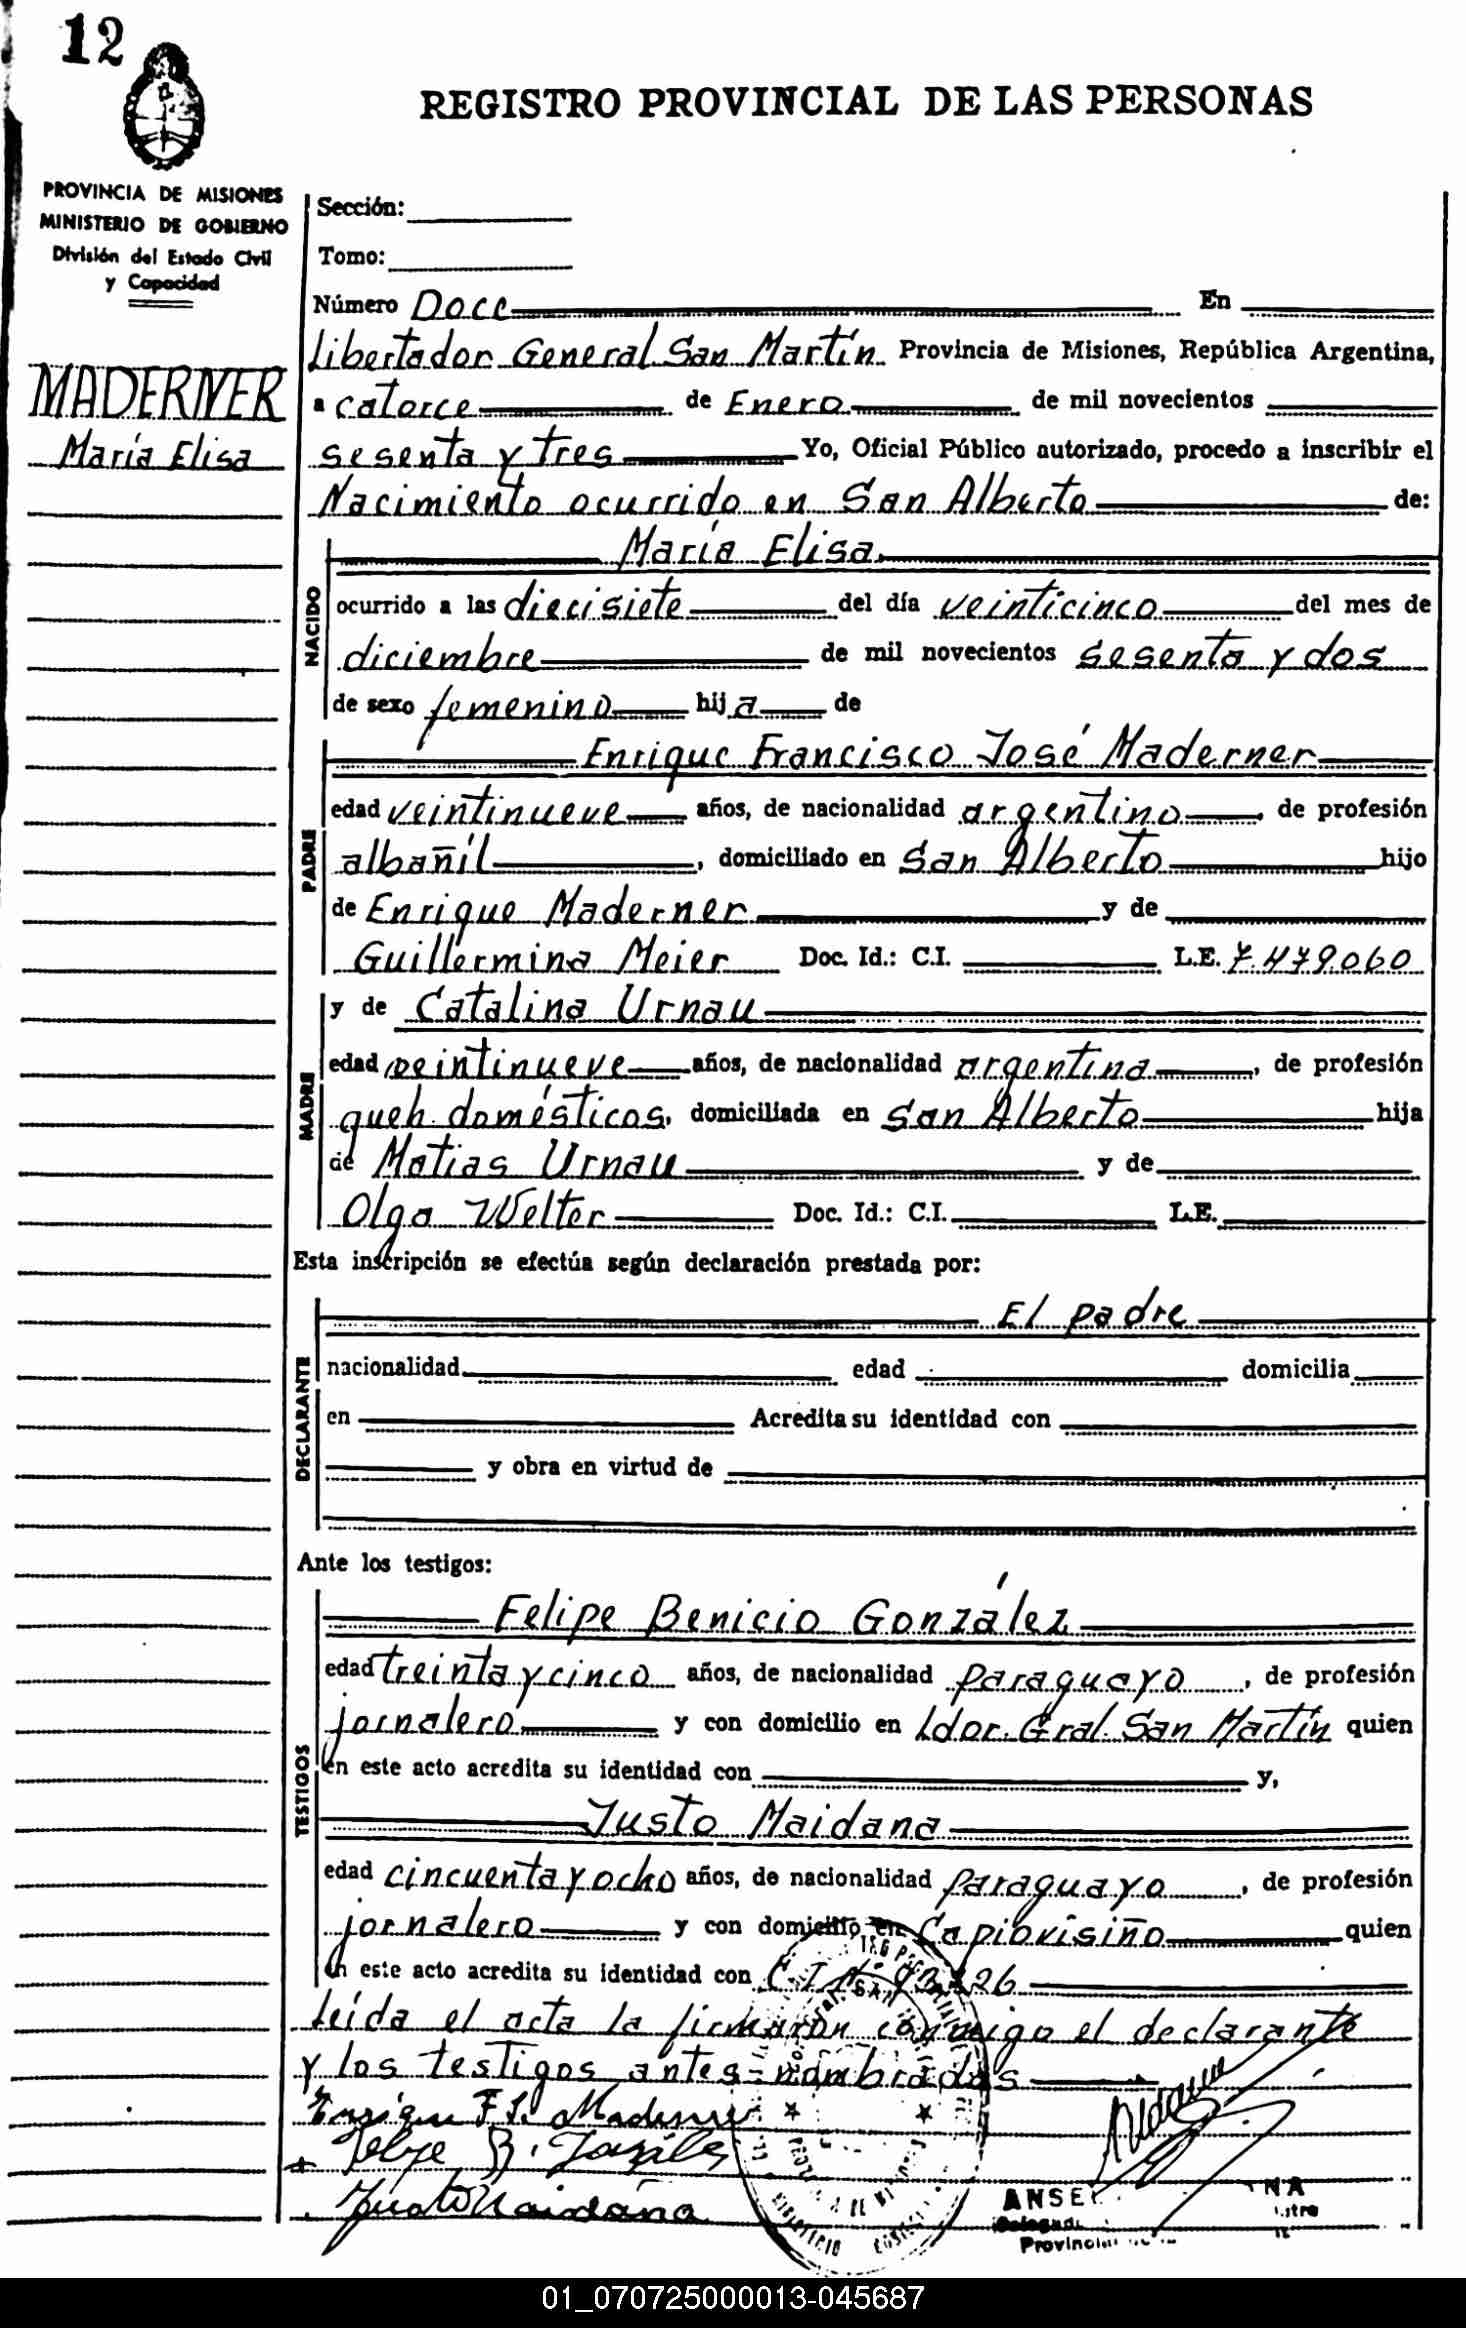 12
REGISTRO PROVINCIAL DE LAS PERSONAS
PROVINCIA DE MISIONES
MINISTERIO DE GOBIERNO
División del Estado Civil
y Capacidad
MADERNER
María Elisa
Sección:
Tomo:
Número Doce En
Libertador General San Martín Provincia de Misiones, República Argentina,
a catorce de Enero de mil novecientos
sesenta y tres Yo, Oficial Público autorizado, procedo a inscribir el
Nacimiento ocurrido en San Alberto de:
NACIDO
María Elisa
ocurrido a las diecisiete del día veinticinco del mes de
diciembre de mil novecientos sesenta y dos
de sexo femenino hija de
PADRE
Enrique Francisco José Maderner
edad veintinueve años, de nacionalidad argentino, de profesión
albañil, domiciliado en San Alberto hijo
de Enrique Maderner y de
Guillermina Meier Doc. Id.: C.I. L.E. 7.479.060
MADRE
y de Catalina Urnau
edad veintinueve años, de nacionalidad argentina, de profesión
queh. domésticos, domiciliada en San Alberto hija
de Matias Urnau y de
Olga Welter Doc. Id.: C.I. L.E.
Esta inscripción se efectúa según declaración prestada por:
DECLARANTE
El padre
nacionalidad edad domicilia
en Acredita su identidad con
y obra en virtud de
Ante los testigos:
TESTIGOS
Felipe Benicio González
edad treinta y cinco años, de nacionalidad paraguayo, de profesión
jornalero y con domicilio en Ldor. Gral. San Martín quien
en este acto acredita su identidad con y,
Justo Maidana
edad cincuenta y ocho años, de nacionalidad paraguayo, de profesión
jornalero y con domicilio en Capiovisiño quien
en este acto acredita su identidad con C I Nº
Leída el acta la firmaron conmigo el declarante
y los testigos antes nombrados
Enrique F J. Maderner
Felipe B. González
Justo Maidana
01_070725000013-045687